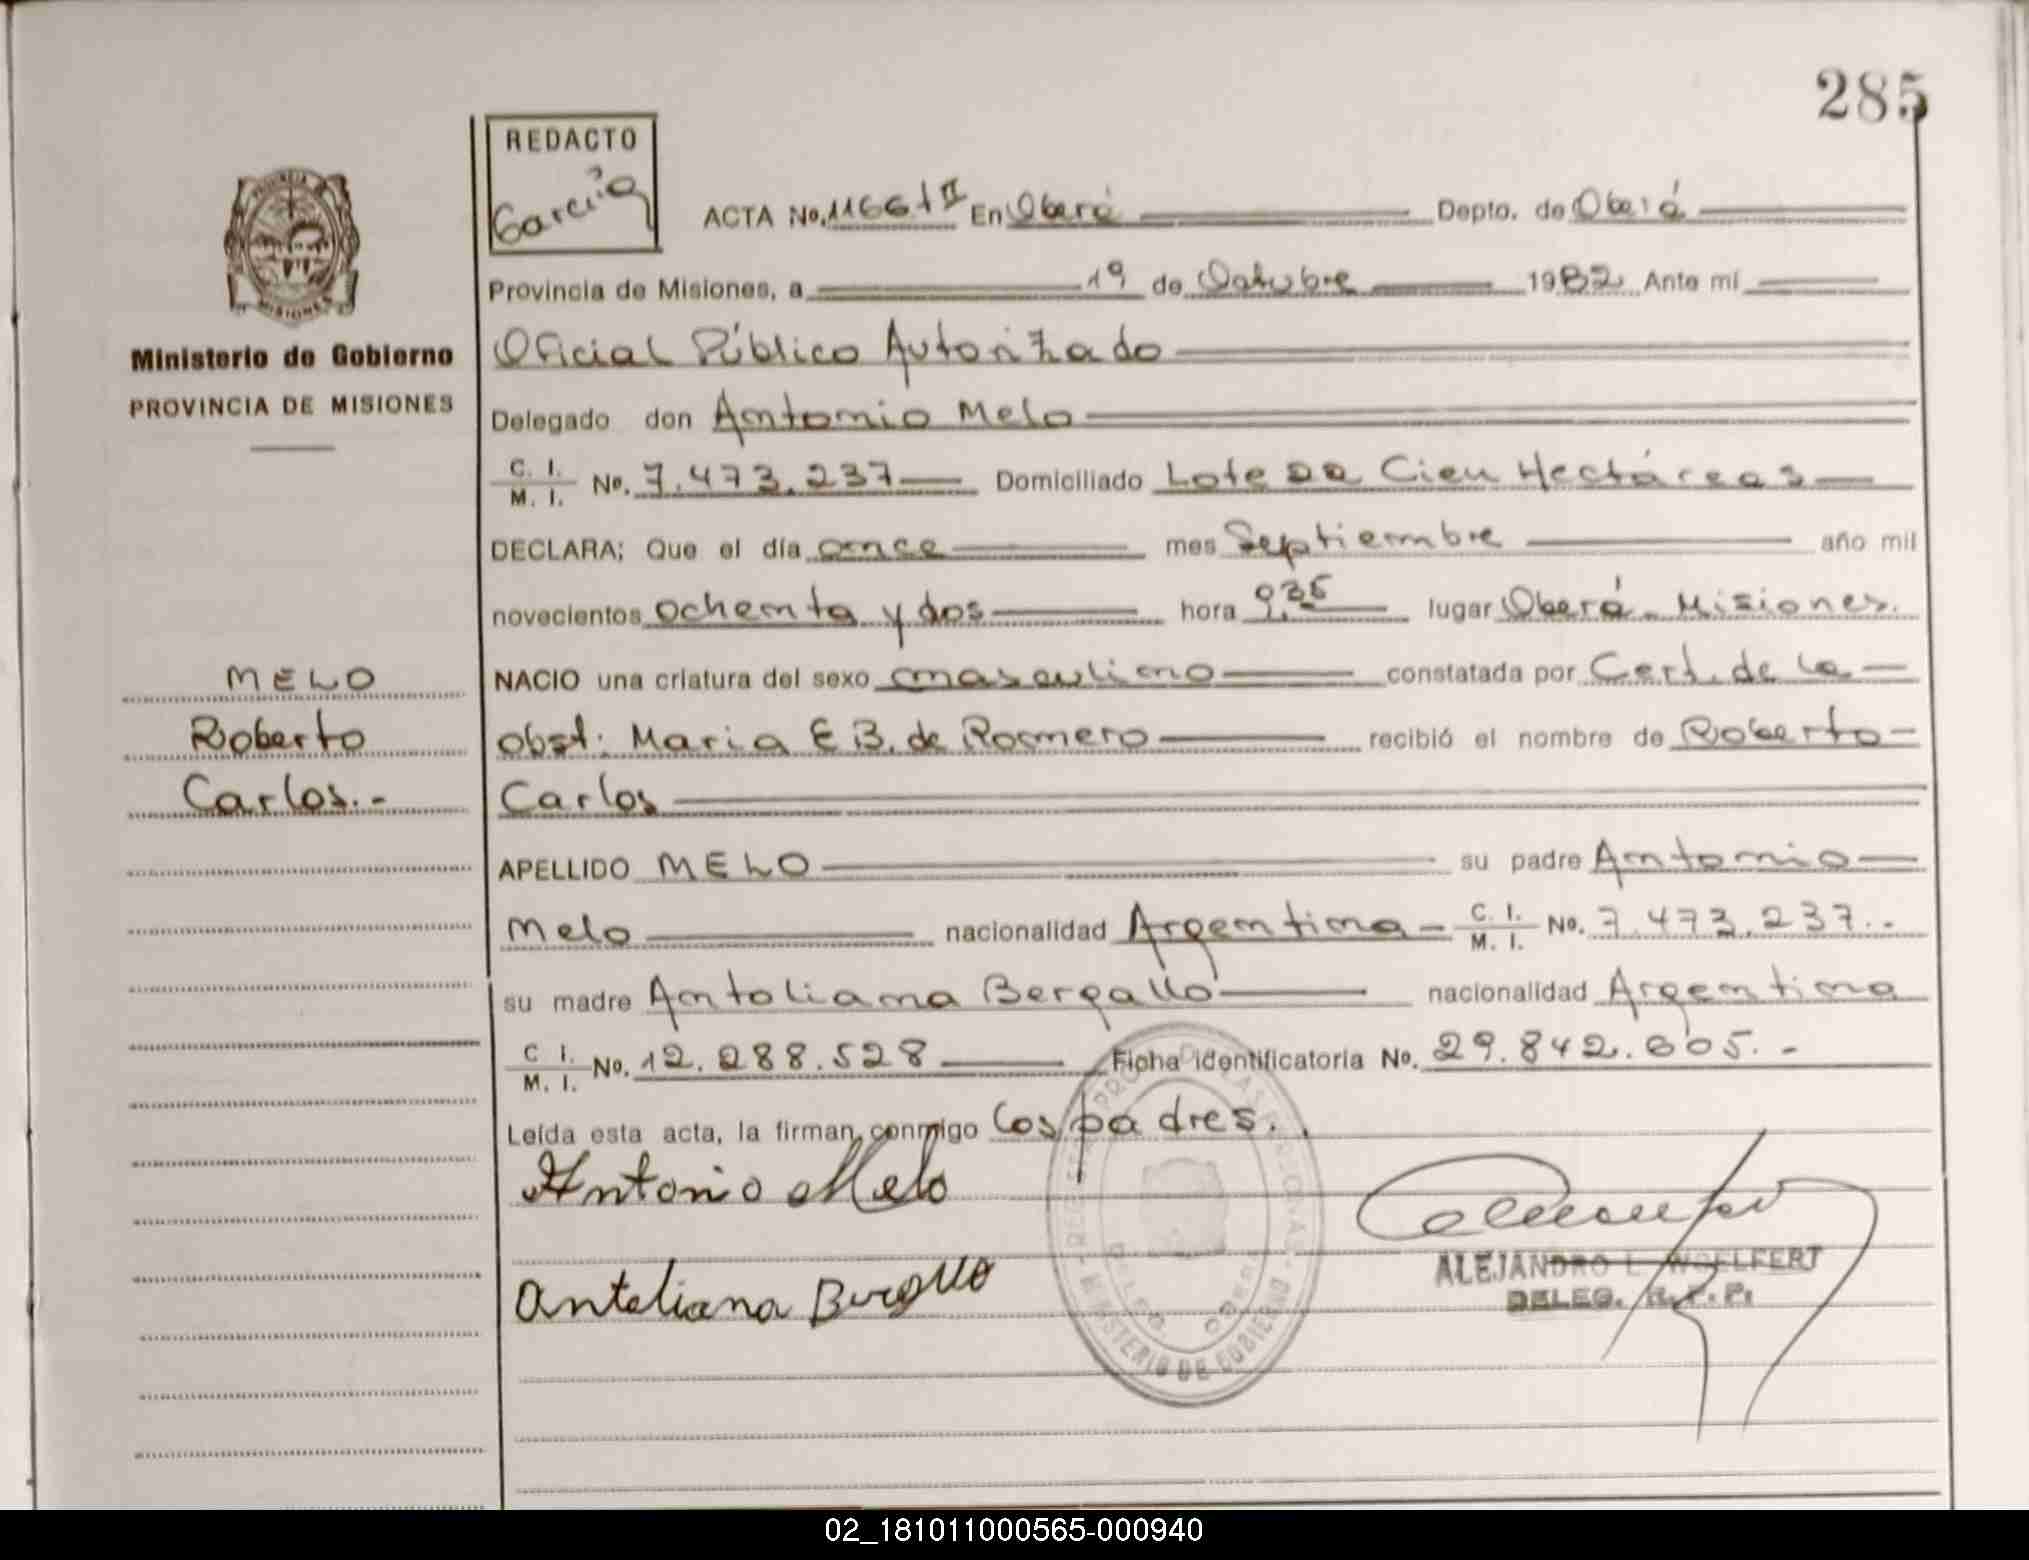 285
REDACTO
Garcia
ACTA No. 1166 t II En Oberá Depto. de Oberá
Provincia de Misiones, a 19 de Octubre 1982 Ante mi
Ministerio de Gobierno
PROVINCIA DE MISIONES
Oficial Público Autorizado
Delegado don Antonio Melo
C. I. / M. I. No. 7.473.237 Domiciliado Lote 22 Cien Hectáreas
DECLARA; Que el día once mes Septiembre año mil
novecientos ochenta y dos hora 9,35 lugar Oberá - Misiones.
MELO
Roberto
Carlos.-
NACIO una criatura del sexo masculino constatada por Cert. de la
obst: Maria E B. de Romero recibió el nombre de Roberto
Carlos
APELLIDO MELO su padre Antonio
Melo nacionalidad Argentina C. I. / M. I. No. 7.473.237.-
su madre Antoliana Bergallo nacionalidad Argentina
C I. / M. I. No. 12.288.528 Ficha identificatoria No. 29.842.005.-
Leída esta acta, la firman conmigo los padres.
Antonio Melo
Antoliana Bergallo
ALEJANDRO L. WOELFERT
DELEG. R. P. P.
MINISTERIO DE GOBIERNO
02_181011000565-000940